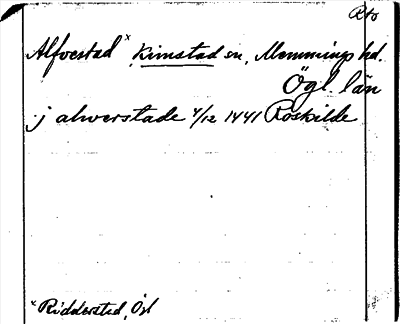 Rto
Alfvestad x Kimstad sn, Memmings hd.
Ögl. län
j alwerstade 4/12 1441 Roskilde
x Ridderstad, Ögl